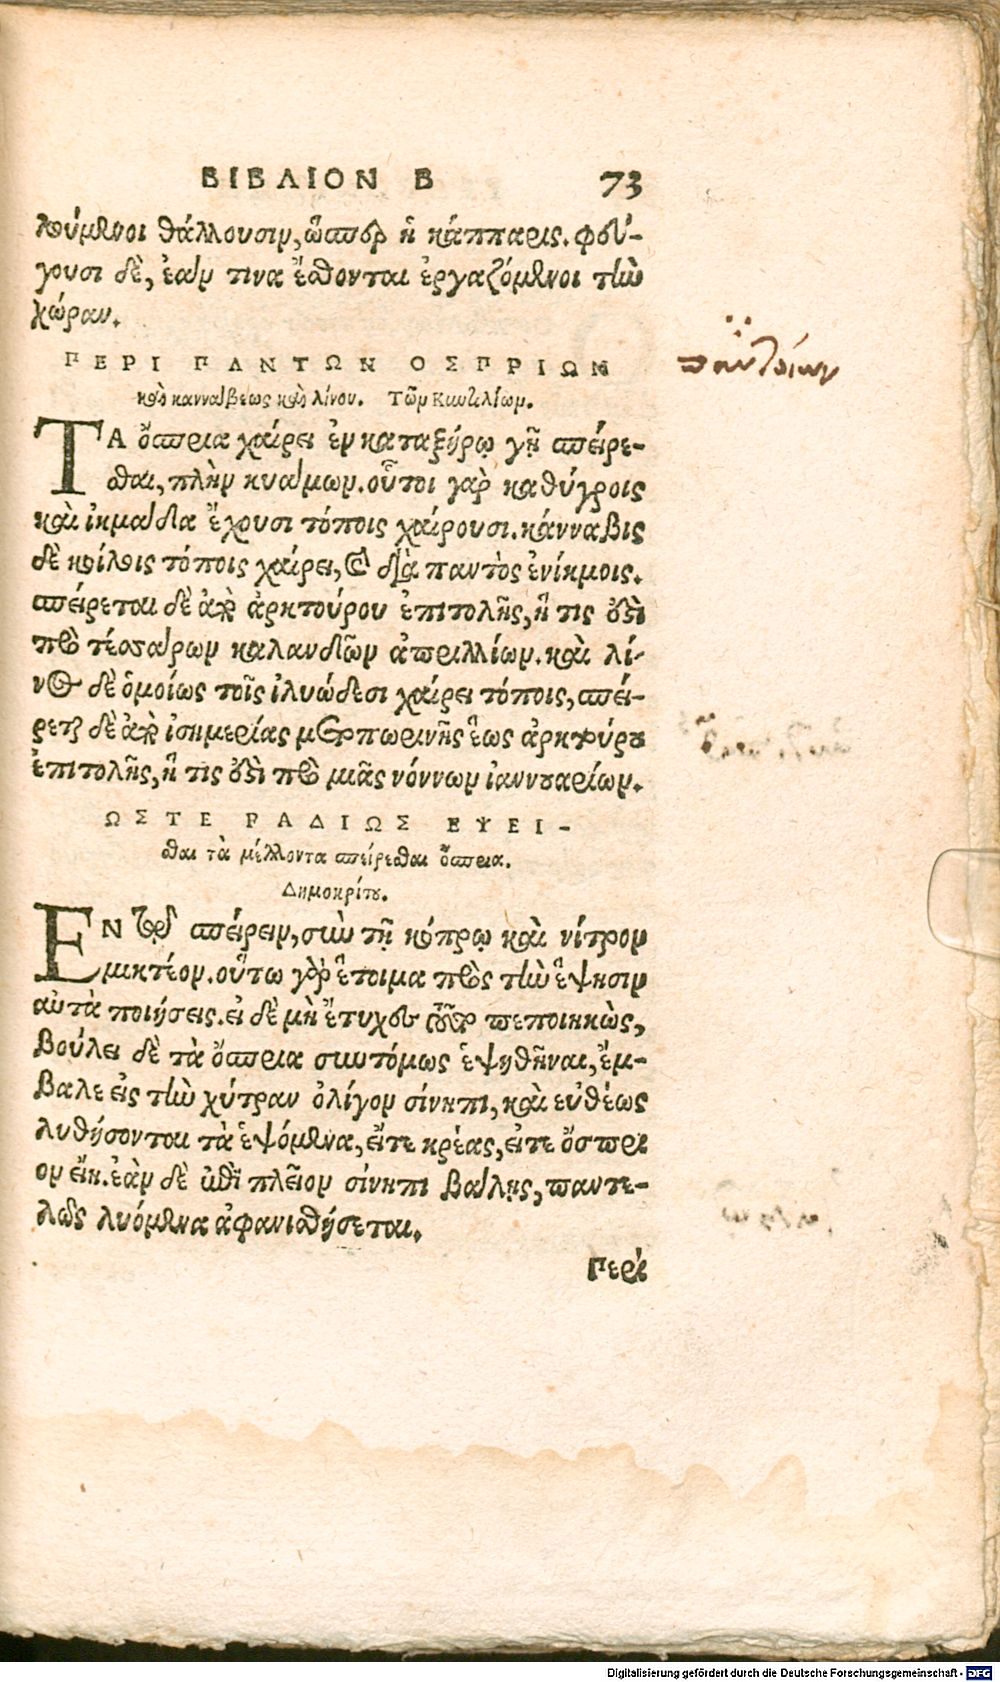 ΒΙΒΛΙΟΝ Β 73
λούμενοι θάλλουσιν, ὥσπερ ἡ κάππαρις. φεύ-
γουσι δὲ, ἐάν τινα ἔσθονται ἐργαζόμενοι τὴν
χώραν.
ΠΕΡΙ ΠΑΝΤΩΝ ΟΣΠΡΙΩΝ
παντοίων
καὶ κανναβεως καὶ λίνου. Τῶν Κυντιλίων.
ΤΑ ὄσπρια χαίρει ἐν καταξήρῳ γῇ σπείρε-
σθαι, πλὴν κυάμων. οὗτοι γὰρ καθύγροις
καὶ ἰκμάδα ἔχουσι τόποις χαίρουσι. κάνναβις
δὲ κοίλοις τόποις χαίρει, καὶ διὰ παντὸς ἐνίκμοις.
σπείρεται δὲ ἀπὸ ἀρκτούρου ἐπιτολῆς, ἥ τις ἐστὶ
πρὸ τέσσάρων καλανδῶν ἀπριλλίων. καὶ λί-
νος δὲ ὁμοίως τοῖς ἰλυώδεσι χαίρει τόποις, σπεί-
ρεται δὲ ἀπὸ ἰσημερίας μετοπωρινῆς ἕως ἀρκτούρου
ἐπιτολῆς, ἥ τις ἐστὶ πρὸ μιᾶς νόννων ἰαννουαρίων.
ΩΣΤΕ ΡΑΔΙΩΣ ΕΨΕΙ-
σθαι τὰ μέλλοντα σπείρεσθαι ὄσπρια.
Δημοκρίτου.
ΕΝ τῷ σπείρειν, σὺν τῇ κόπρῳ καὶ νίτρον
μικτέον. οὕτω γὰρ ἕτοιμα πρὸς τὴν ἕψησιν
αὐτὰ ποιήσεις. εἰ δὲ μὴ ἔτυχες οὕτω πεποιηκὼς,
βούλει δὲ τὰ ὄσπρια συντόμως ἑψηθῆναι, ἔμ-
βαλε εἰς τὴν χύτραν ὀλίγον σίνηπι, καὶ εὐθέως
λυθήσονται τὰ ἑψόμενα, εἴτε κρέας, εἴτε ὄσπρι
ον εἴη. ἐὰν δὲ ἐπὶ πλεῖον σίνηπι βάλῃς, παντε-
λῶς λυόμενα ἀφανισθήσεται.
Περὶ
Digitalisierung gefördert durch die Deutsche Forschungsgemeinschaft - DFG